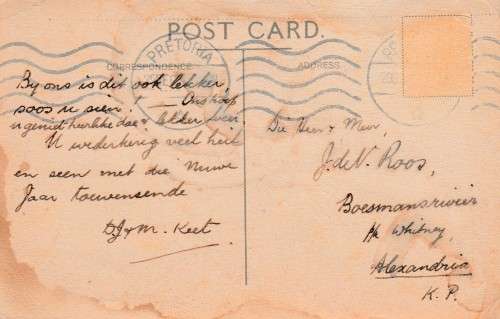 POST CARD.
CORRESPONDENCE
ADDRESS
PRETORIA
By ons is dit ook lekker
soos u sien! — Ons hoop
u geniet heerlike dae & lekker
U wederkerig veel heil
en seen met die Nuwe
Jaar toewensende
D.J & M. Keet
Die Heer & Mevr,
J. de V. Roos,
Boesmansrivier
P/k Whitney,
Alexandria
K. P.